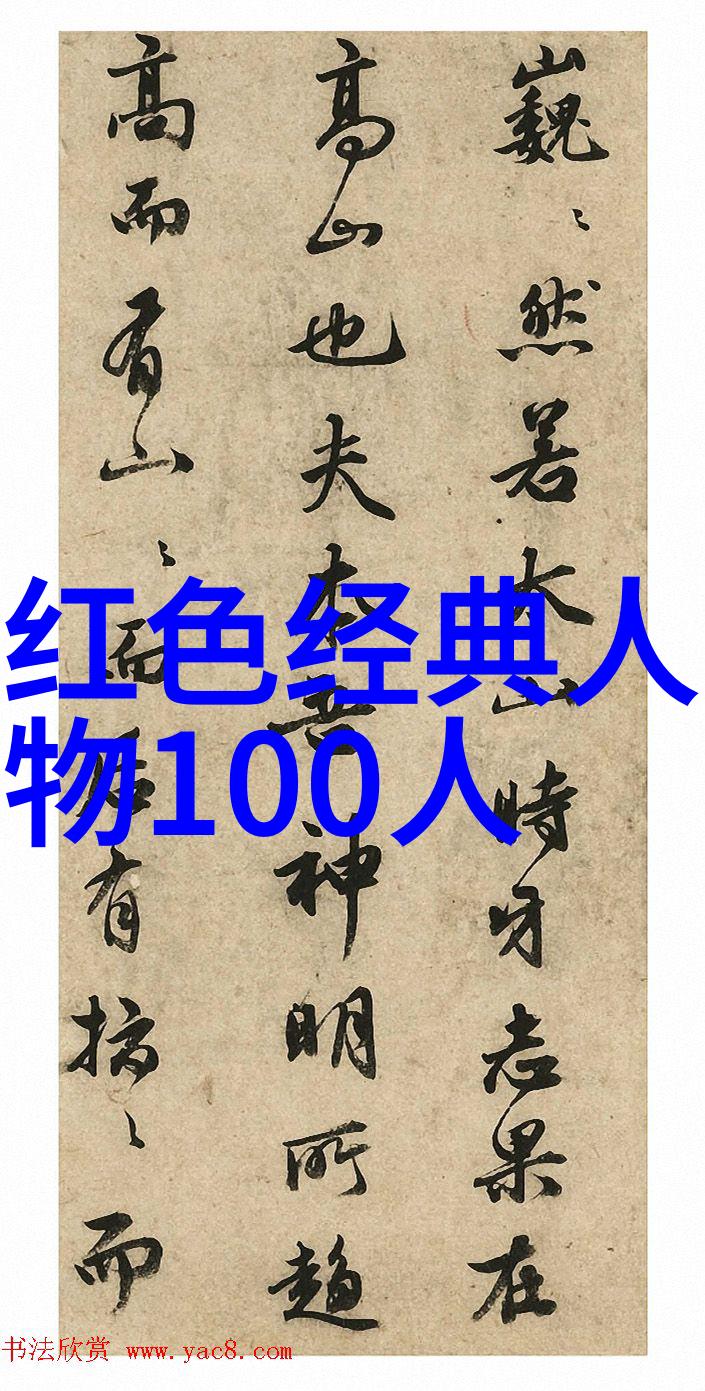 巍〻然若太山時牙志果在
高山也夫本吾神明所趨
高而有山〻而后有㨍〻而
红色经典人
物100人
书法欣赏 www.yac8.com